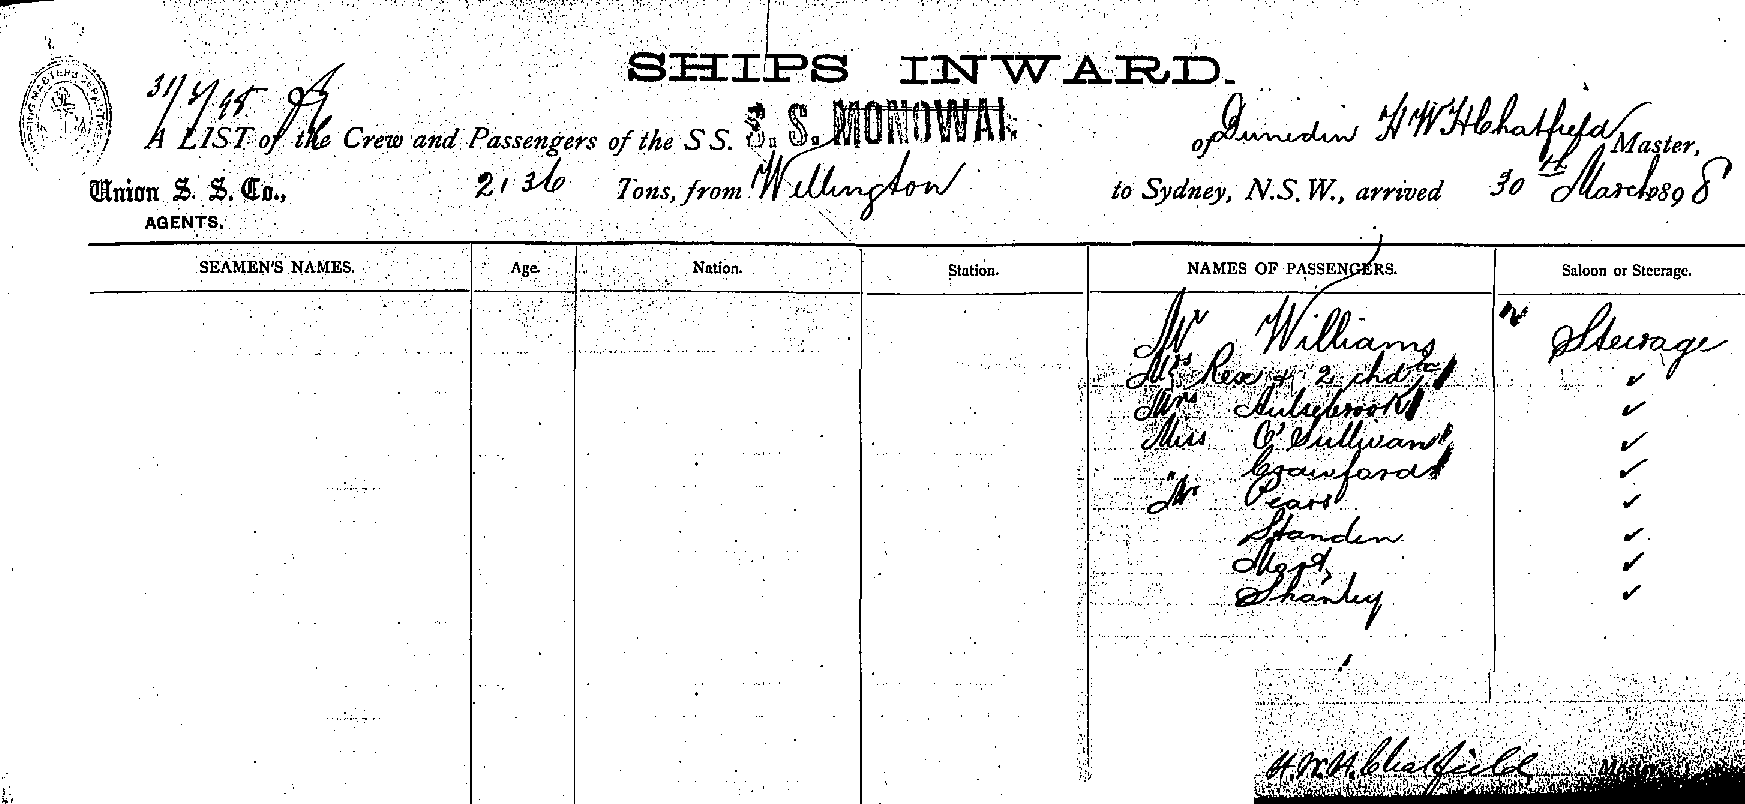 SHIPS INWARD.
A LIST of the Crew and Passengers of the SS. S. S. MONOWAI. of Dunedin H W H Chatfield Master,
Union S. S. Co., 2136 Tons, from Wellington to Sydney, N.S.W., arrived 30th March 1898
AGENTS.
SEAMEN'S NAMES. Age. Nation. Station. NAMES OF PASSENGERS. Saloon or Steerage.
Mr Williams Steerage
Mrs Rex & 2 chdn ✓
Mrs ✓
Miss O'Sullivan ✓
" Crawford ✓
Mr Pears ✓
Standen ✓
✓
Shanley ✓
H.W.H. Chatfield